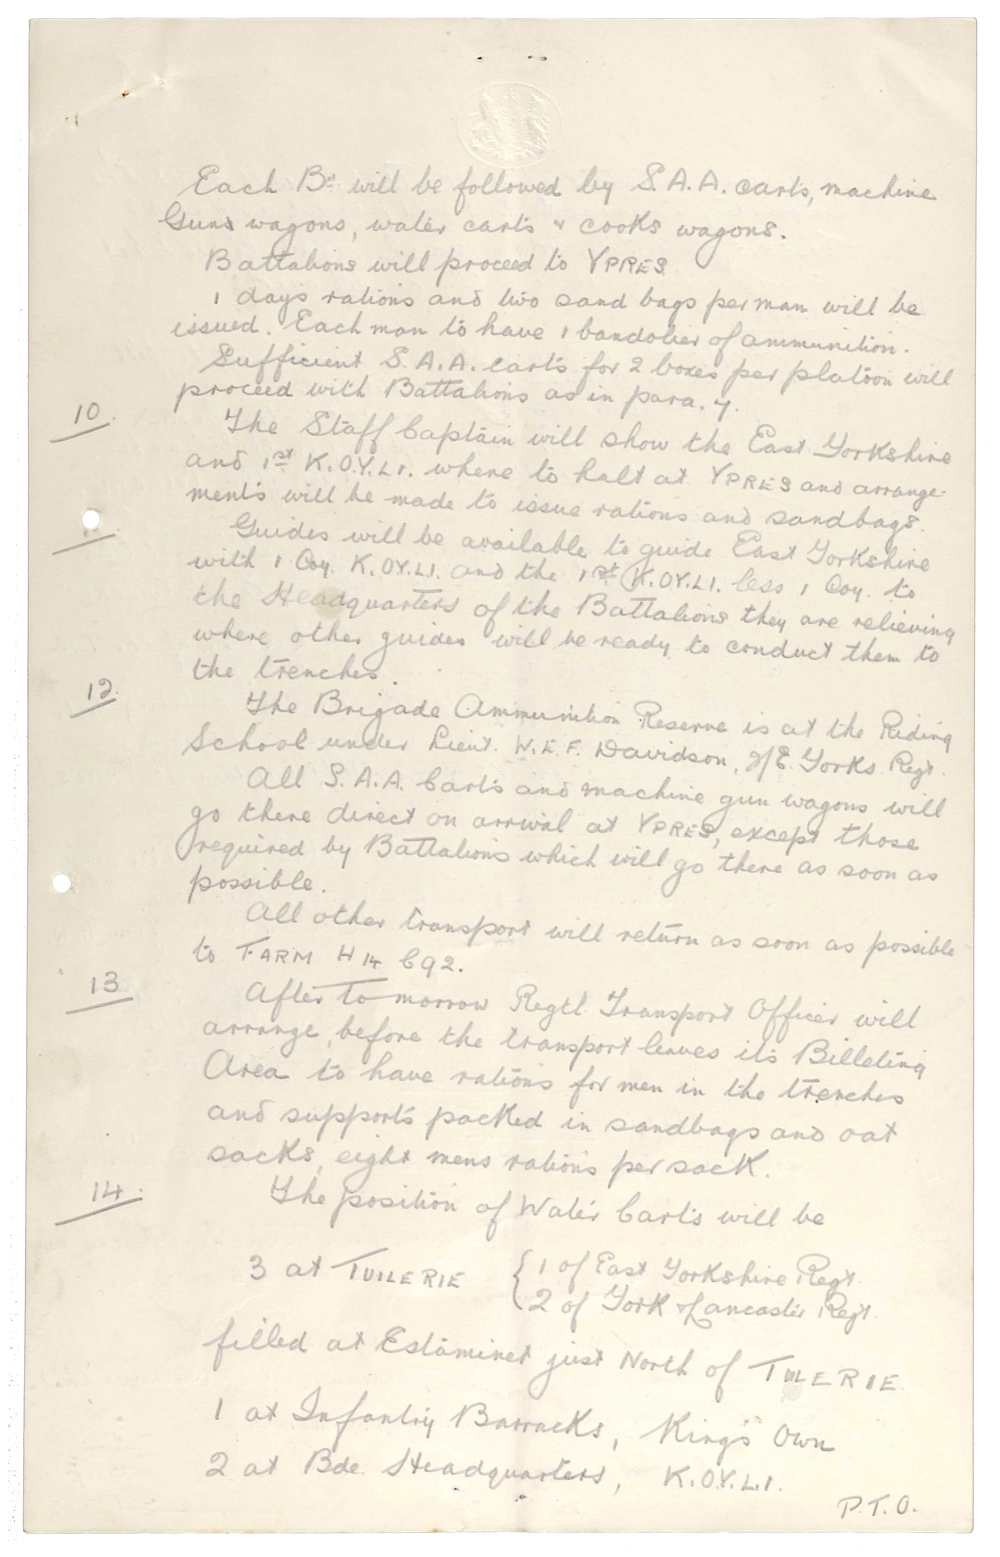 Each Bn will be followed by S.A.A. carts, machine
Guns wagons, water carts & cooks wagons.
Battalions will proceed to YPRES
1 days rations and two sand bags per man will be
issued. Each man to have 1 bandolier of ammunition.
Sufficient S.A.A. carts for 2 boxes per platoon will
proceed with Battalions as in para. 7.
10. The Staff Captain will show the East Yorkshire
and 1st K.O.Y.L.I. where to halt at YPRES and arrange-
ments will be made to issue rations and sandbags.
11 Guides will be available to guide East Yorkshire
with 1 Coy. K.OY.L.I. and the 1st K.OY.L.I. less 1 Coy. to
the Headquarters of the Battalions they are relieving
where other guides will be ready to conduct them to
the trenches.
12. The Brigade Ammunition Reserve is at the Riding
School under Lieut. W.E.F. Davidson, of E. Yorks. Regt.
All S.A.A. Carts and machine gun wagons will
go there direct on arrival at YPRES, except those
required by Battalions which will go there as soon as
possible.
All other transport will return as soon as possible
to FARM H 14 C 9 2.
13 After To-morrow Regtl. Transport Officer will
arrange, before the transport leaves its Billeting
Area to have rations for men in the trenches
and supports packed in sandbags and oat
sacks, eight mens rations per sack.
14. The position of Water Carts will be
3 at TUILERIE { 1 of East Yorkshire Regt.
2 of York & Lancaster Regt.
filled at Estaminet just North of TUILERIE.
1 at Infantry Barracks, King's Own
2 at Bde. Headquarters, K.O.Y.L.I.
P.T.O.